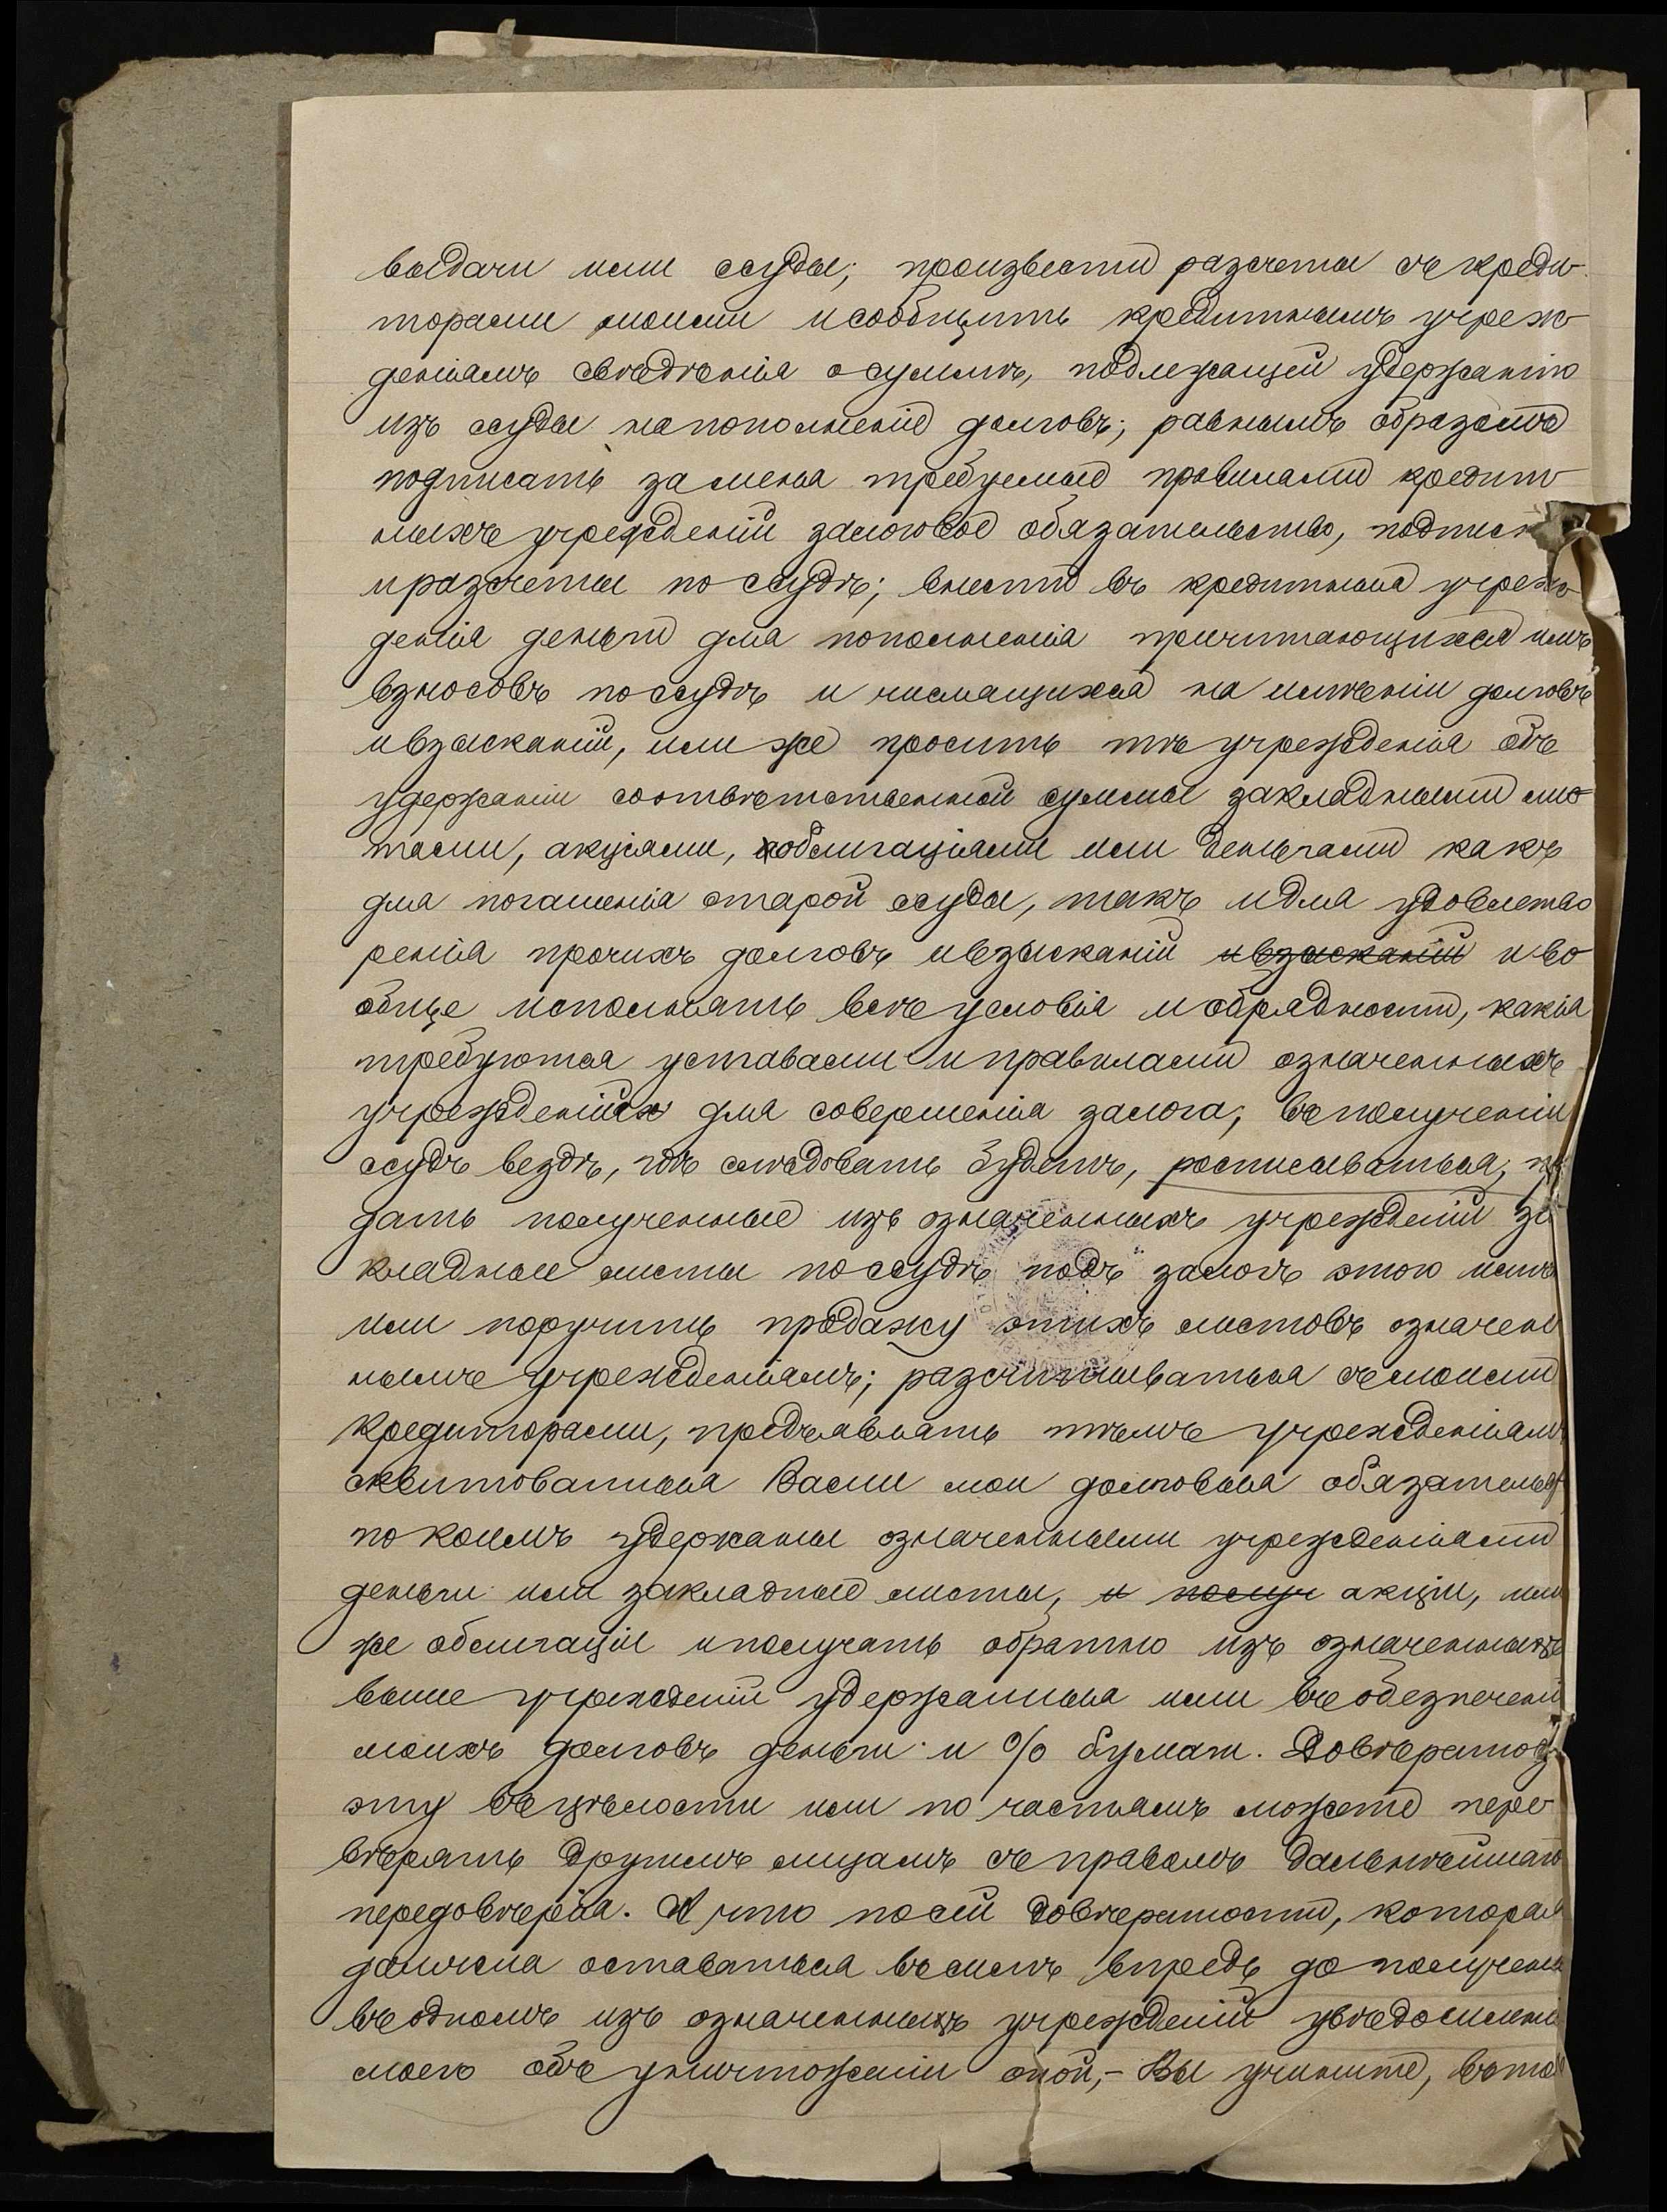 выдачи или ссуды; произвести разсчеты съ креди-
торами моими и сообщить кредитнымъ учреж-
деніямъ свѣдѣнія о суммѣ, подлежащей удержанію
изъ ссуды на пополненіе долговъ; равнымъ образомъ
подписать за меня требуемые правилами кредит-
ныхъ учрежденій залоговое обязательство, подписк
и разсчеты по ссудѣ; внести въ кредитныя учреж-
денія деньги для пополненія причитающихся имъ
взносовъ по ссудѣ и числящихся на имѣніи долговъ
и взысканій, или же просить тѣ учрежденія объ
удержаніи соотвѣтственной суммы закладными лис-
тами, акціями, облигаціями или деньгами какъ
для погашенія старой ссуды, такъ и для удовлетво
ренія прочихъ долговъ и взысканій и взысканій и во
обще исполнять всѣ условія и обрядности, какія
требуются уставами и правилами означенныхъ
учрежденіяхъ для совершенія залога; въ полученіи
ссудъ вездѣ, гдѣ слѣдовать будетъ, росписываться; пр
дать полученные изъ означенныхъ учрежденій за
кладные листы по ссудѣ подъ залогъ этого имѣн
или поручить продажу этихъ листовъ означен
нымъ учрежденіямъ; разсчитываться съ моими
кредиторами, предъявлять тѣмъ учрежденіямъ
сквитованныя Вами мои долговыя обязательст
по коимъ удержаны означенными учрежденіями
деньги или закладные листы, и получ акціи, или
же облигаціи и получать обратно изъ означенныхъ
выше учрежденій удержанныя ими въ обезпечені
моихъ долговъ деньги и % бумаги. Довѣренность
эту въ цѣлости или по частямъ можете пере-
вѣрять другимъ лицамъ съ правомъ дальнѣйшаго
передовѣрія. И что по сей довѣренности, которая
должна оставаться въ силѣ впредь до полученія
въ одномъ изъ означенныхъ учрежденій увѣдомленія
моего объ уничтоженіи оной,- Вы учините, въ том